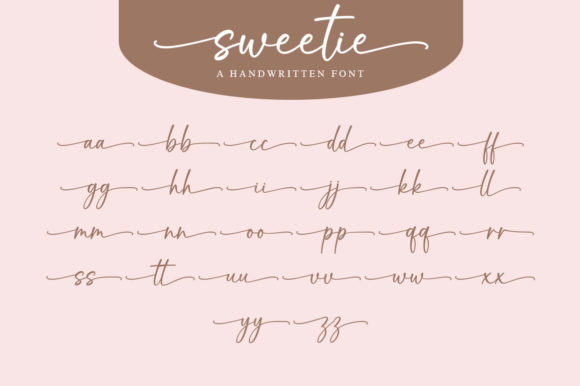 sweetie
A HANDWRITTEN FONT
aa bb cc dd ee ff
gg hh ii jj kk ll
mm nn oo pp qq rr
ss tt uu vv ww xx
yy zz